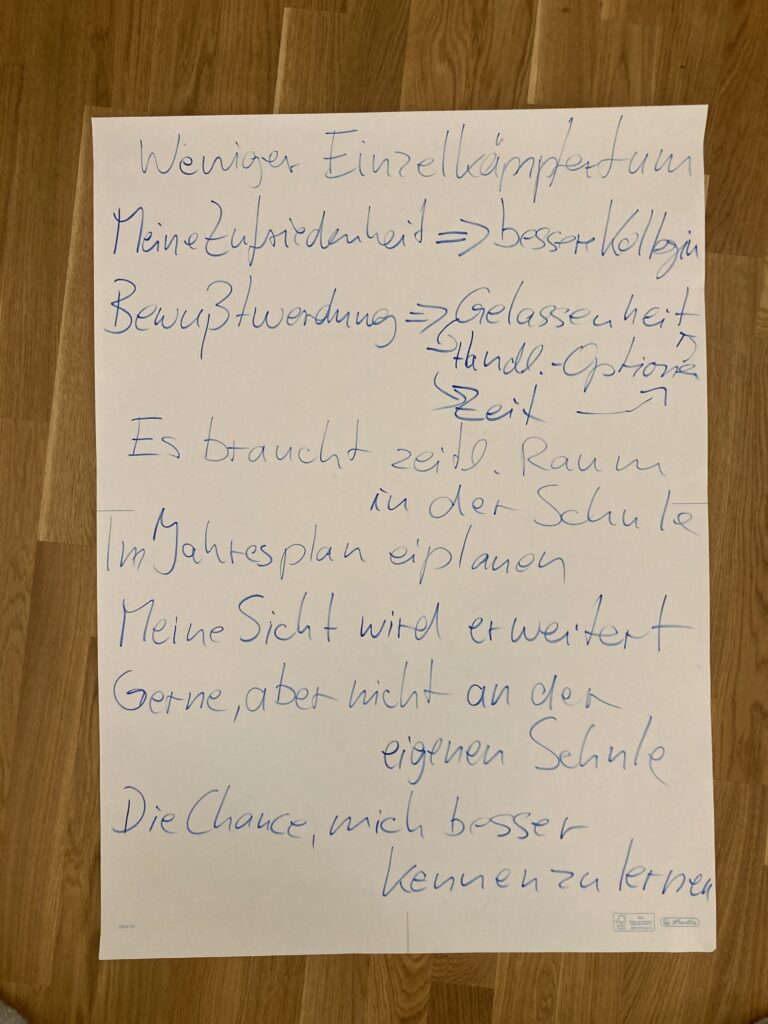 Weniger Einzelkämpfertum
Meine Zufriedenheit => bessere Kollegin
Bewußtwerdung => Gelassenheit
Handl.-Optionen
Zeit
Es braucht zeitl. Raum
in der Schule
Im Jahresplan eiplanen
Meine Sicht wird erweitert
Gerne, aber nicht an der
eigenen Schule
Die Chance, mich besser
kennenzulernen